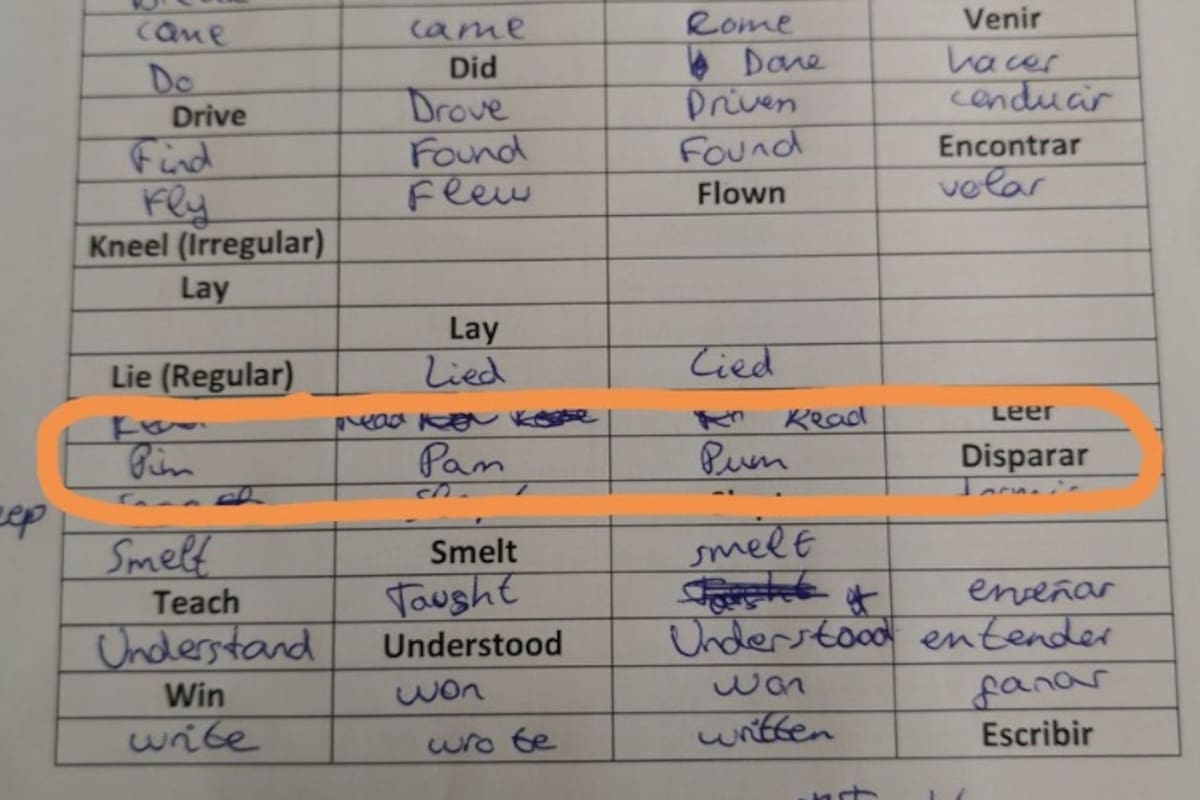 came came Rome Venir
Do Did Done hacer
Drive Drove Driven conducir
Find Found Found Encontrar
Fly Flew Flown volar
Kneel (Irregular)
Lay
Lay
Lie (Regular) Lied Lied
Read Read Leer
Pim Pam Pum Disparar
eep
Smelt Smelt smelt
Teach Taught enseñar
Understand Understood Understood entender
Win won won ganar
write wrote written Escribir